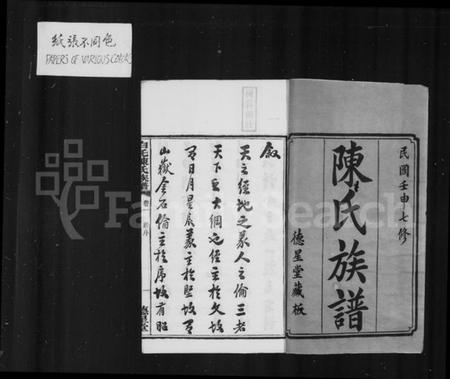 紙張不同色
PAPERS OF VARIOUS COLORS
民國壬申七修
陳氏族譜
德星堂藏板
敘
天之經地之義人之倫三者
天下之大綱也經主於文故
有日月星辰義主於堅故有
山嶽金石倫主於序故有昭
陳氏族譜
FamilySearch